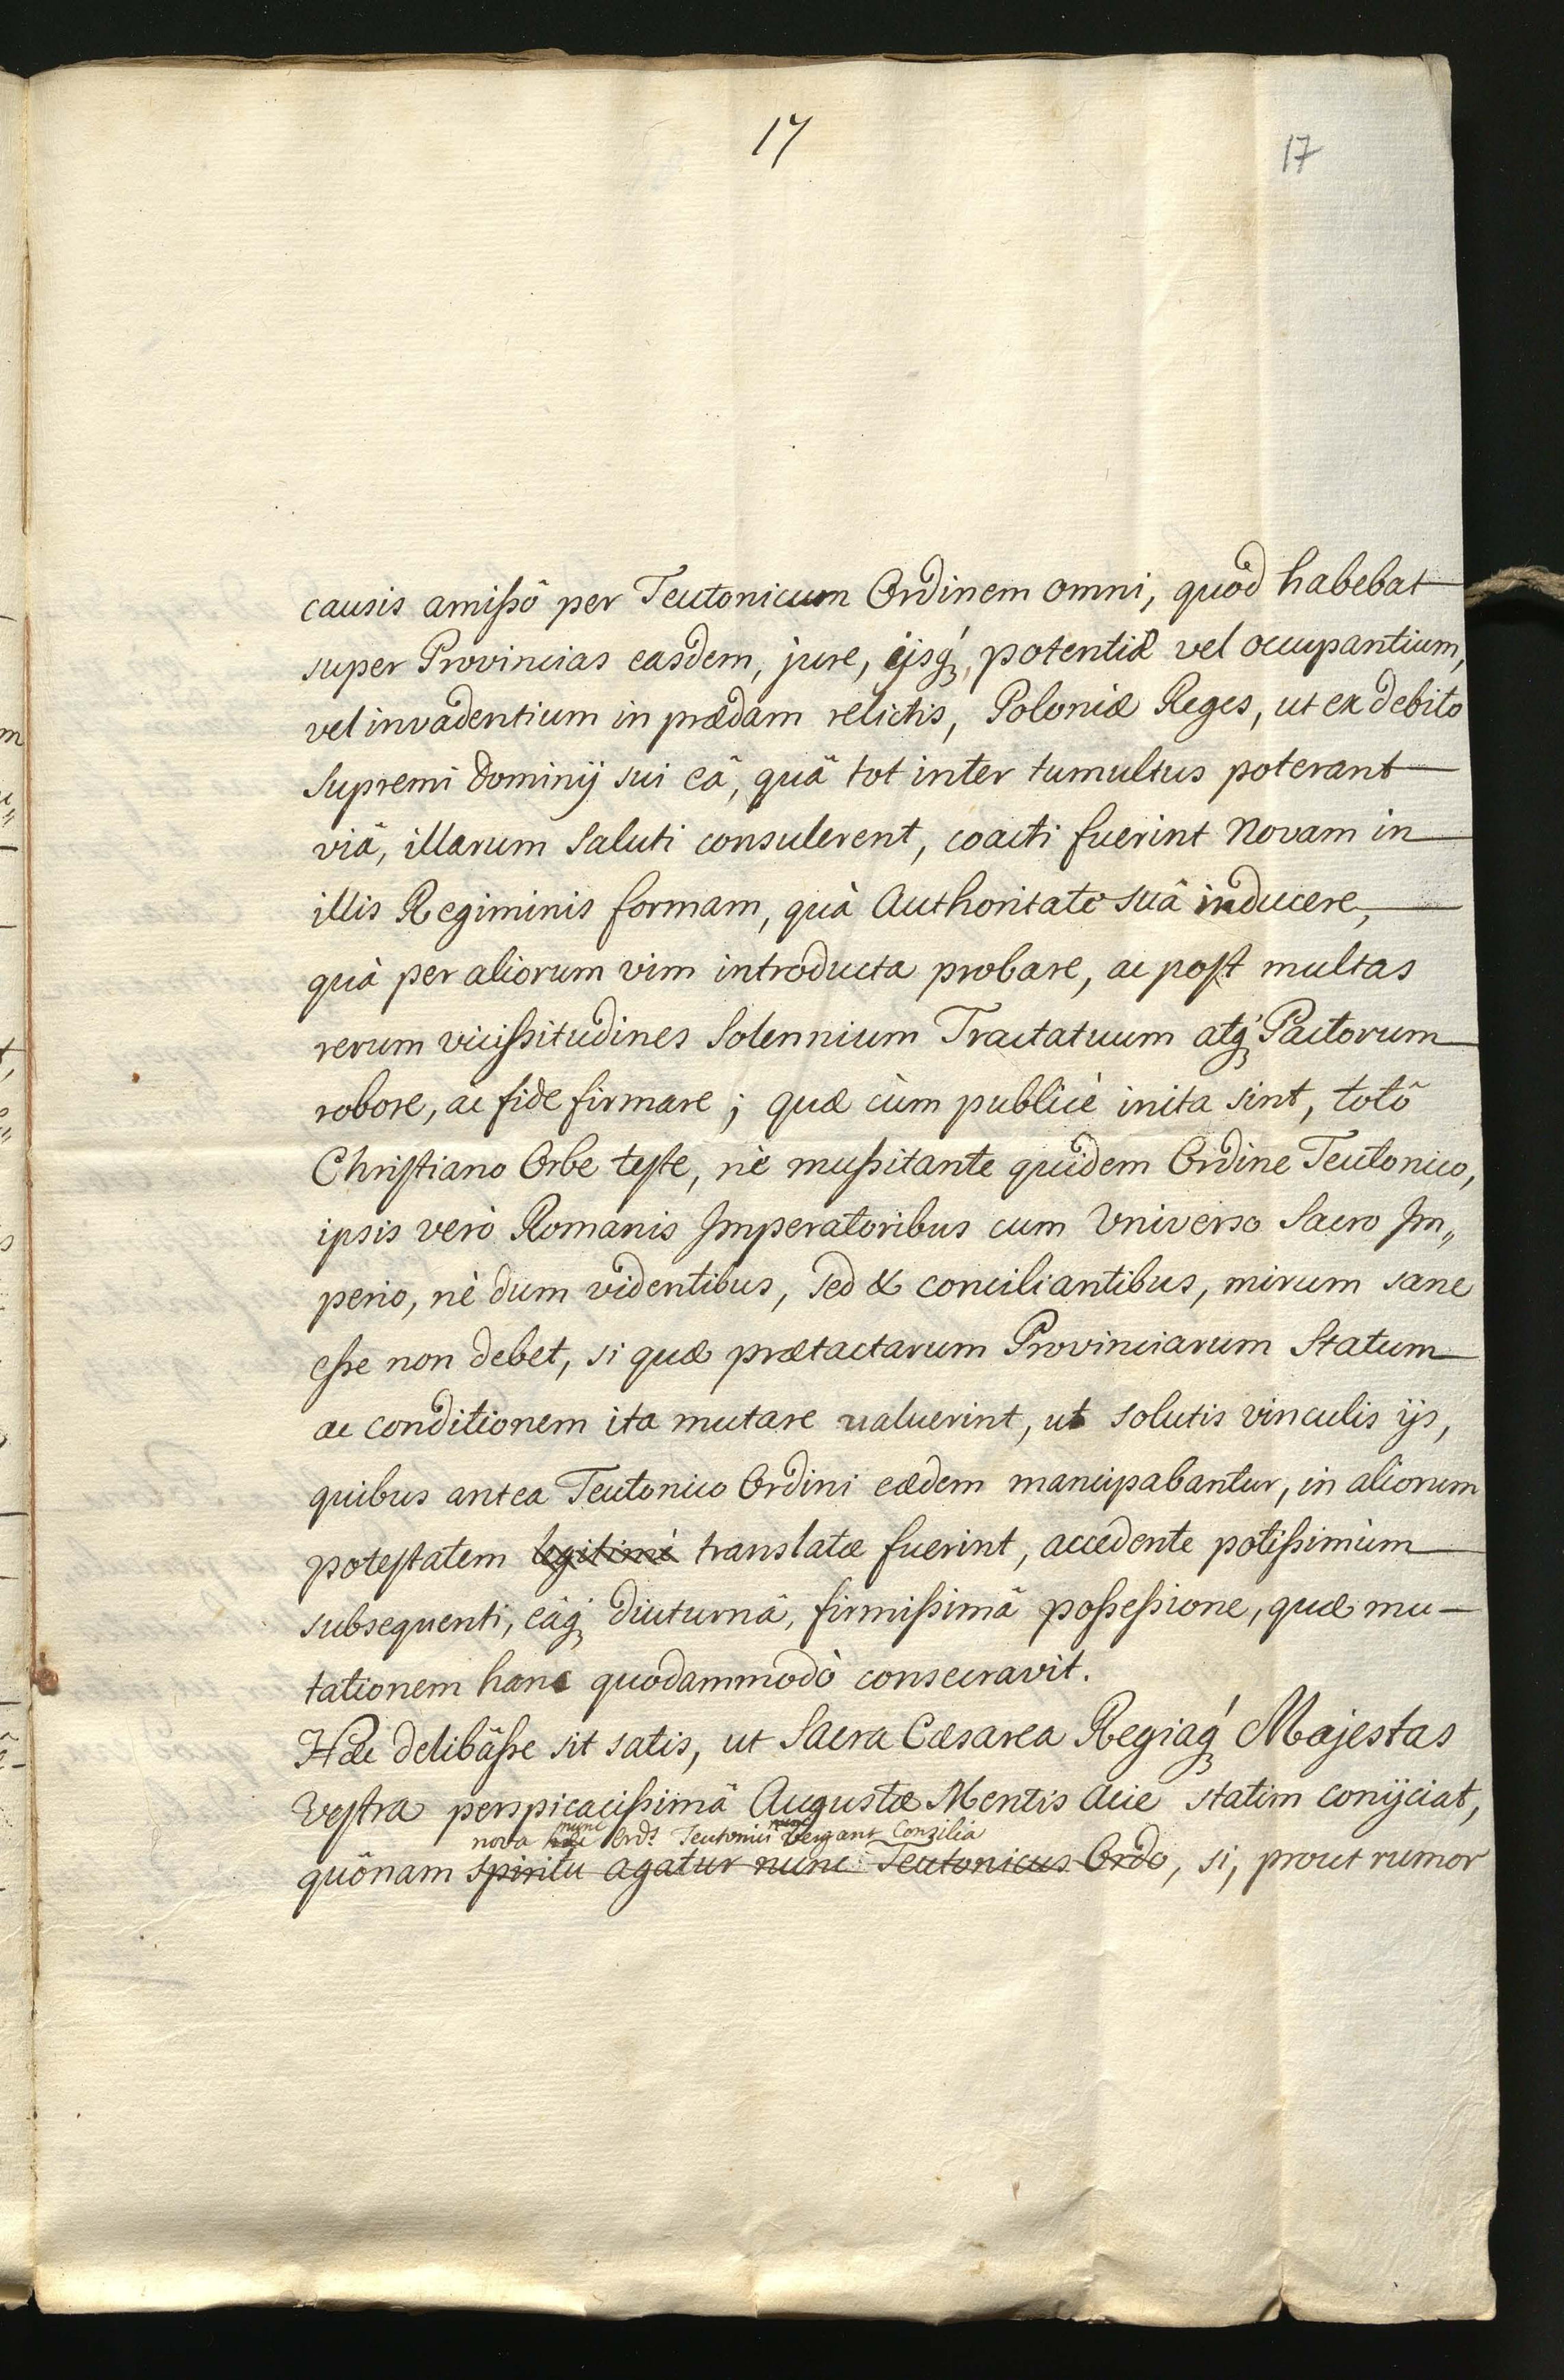 17
17
causis amissô per Teutonicum Ordinem omni, quòd habebat
super Provincias easdem, jure, ijsq́ꝫ, potentiæ vel occupantium,
vel invadentium in prædam relictis, Poloniæ Reges, ut ex debito
supremi Dominij sui eâ, quâ tot inter tumultus poterant
viâ, illarum Saluti consulerent, coacti fuerint Novam in
illis Regiminis formam, quà Authoritate suâ inducere,
quà per aliorum vim introducta probare, ac post multas
rerum vicissitudines Solennium Tractatuum atq́ꝫ Pactorum
robore, ac fide firmare; quæ cùm publicè inita sint, totô
Christiano Orbe teste, nè mussitante quidem Ordine Teutonico,
ipsis verò Romanis Imperatoribus cum Universo Sacro Im„
perio, nè dum videntibus, sed & conciliantibus, mirum sane
esse non debet, si quæ prætactarum Provinciarum Statum
ac conditionem ita mutare valuerint, ut solutis vinculis ijs,
quibus antea Teutonico Ordini eædem mancipabantur, in aliorum
potestatem legitimè translatæ fuerint, accedente potissimùm
subsequenti, eâq́ꝫ diuturnâ, firmissimâ possessione, quæ mu-
tationem hanc quodammodò consecravit.
Hæc delibâsse sit satis, ut Sacra Cæsarea Regiaq́ꝫ Majestas
Vestra perspicacissimâ Augustæ Mentis Acie statim conijciat,
nunc nunc
nova Ords Teutonici vergant Consilia
quônam spiritu agatur nunc Teutonicus Ordo, si, prout rumor